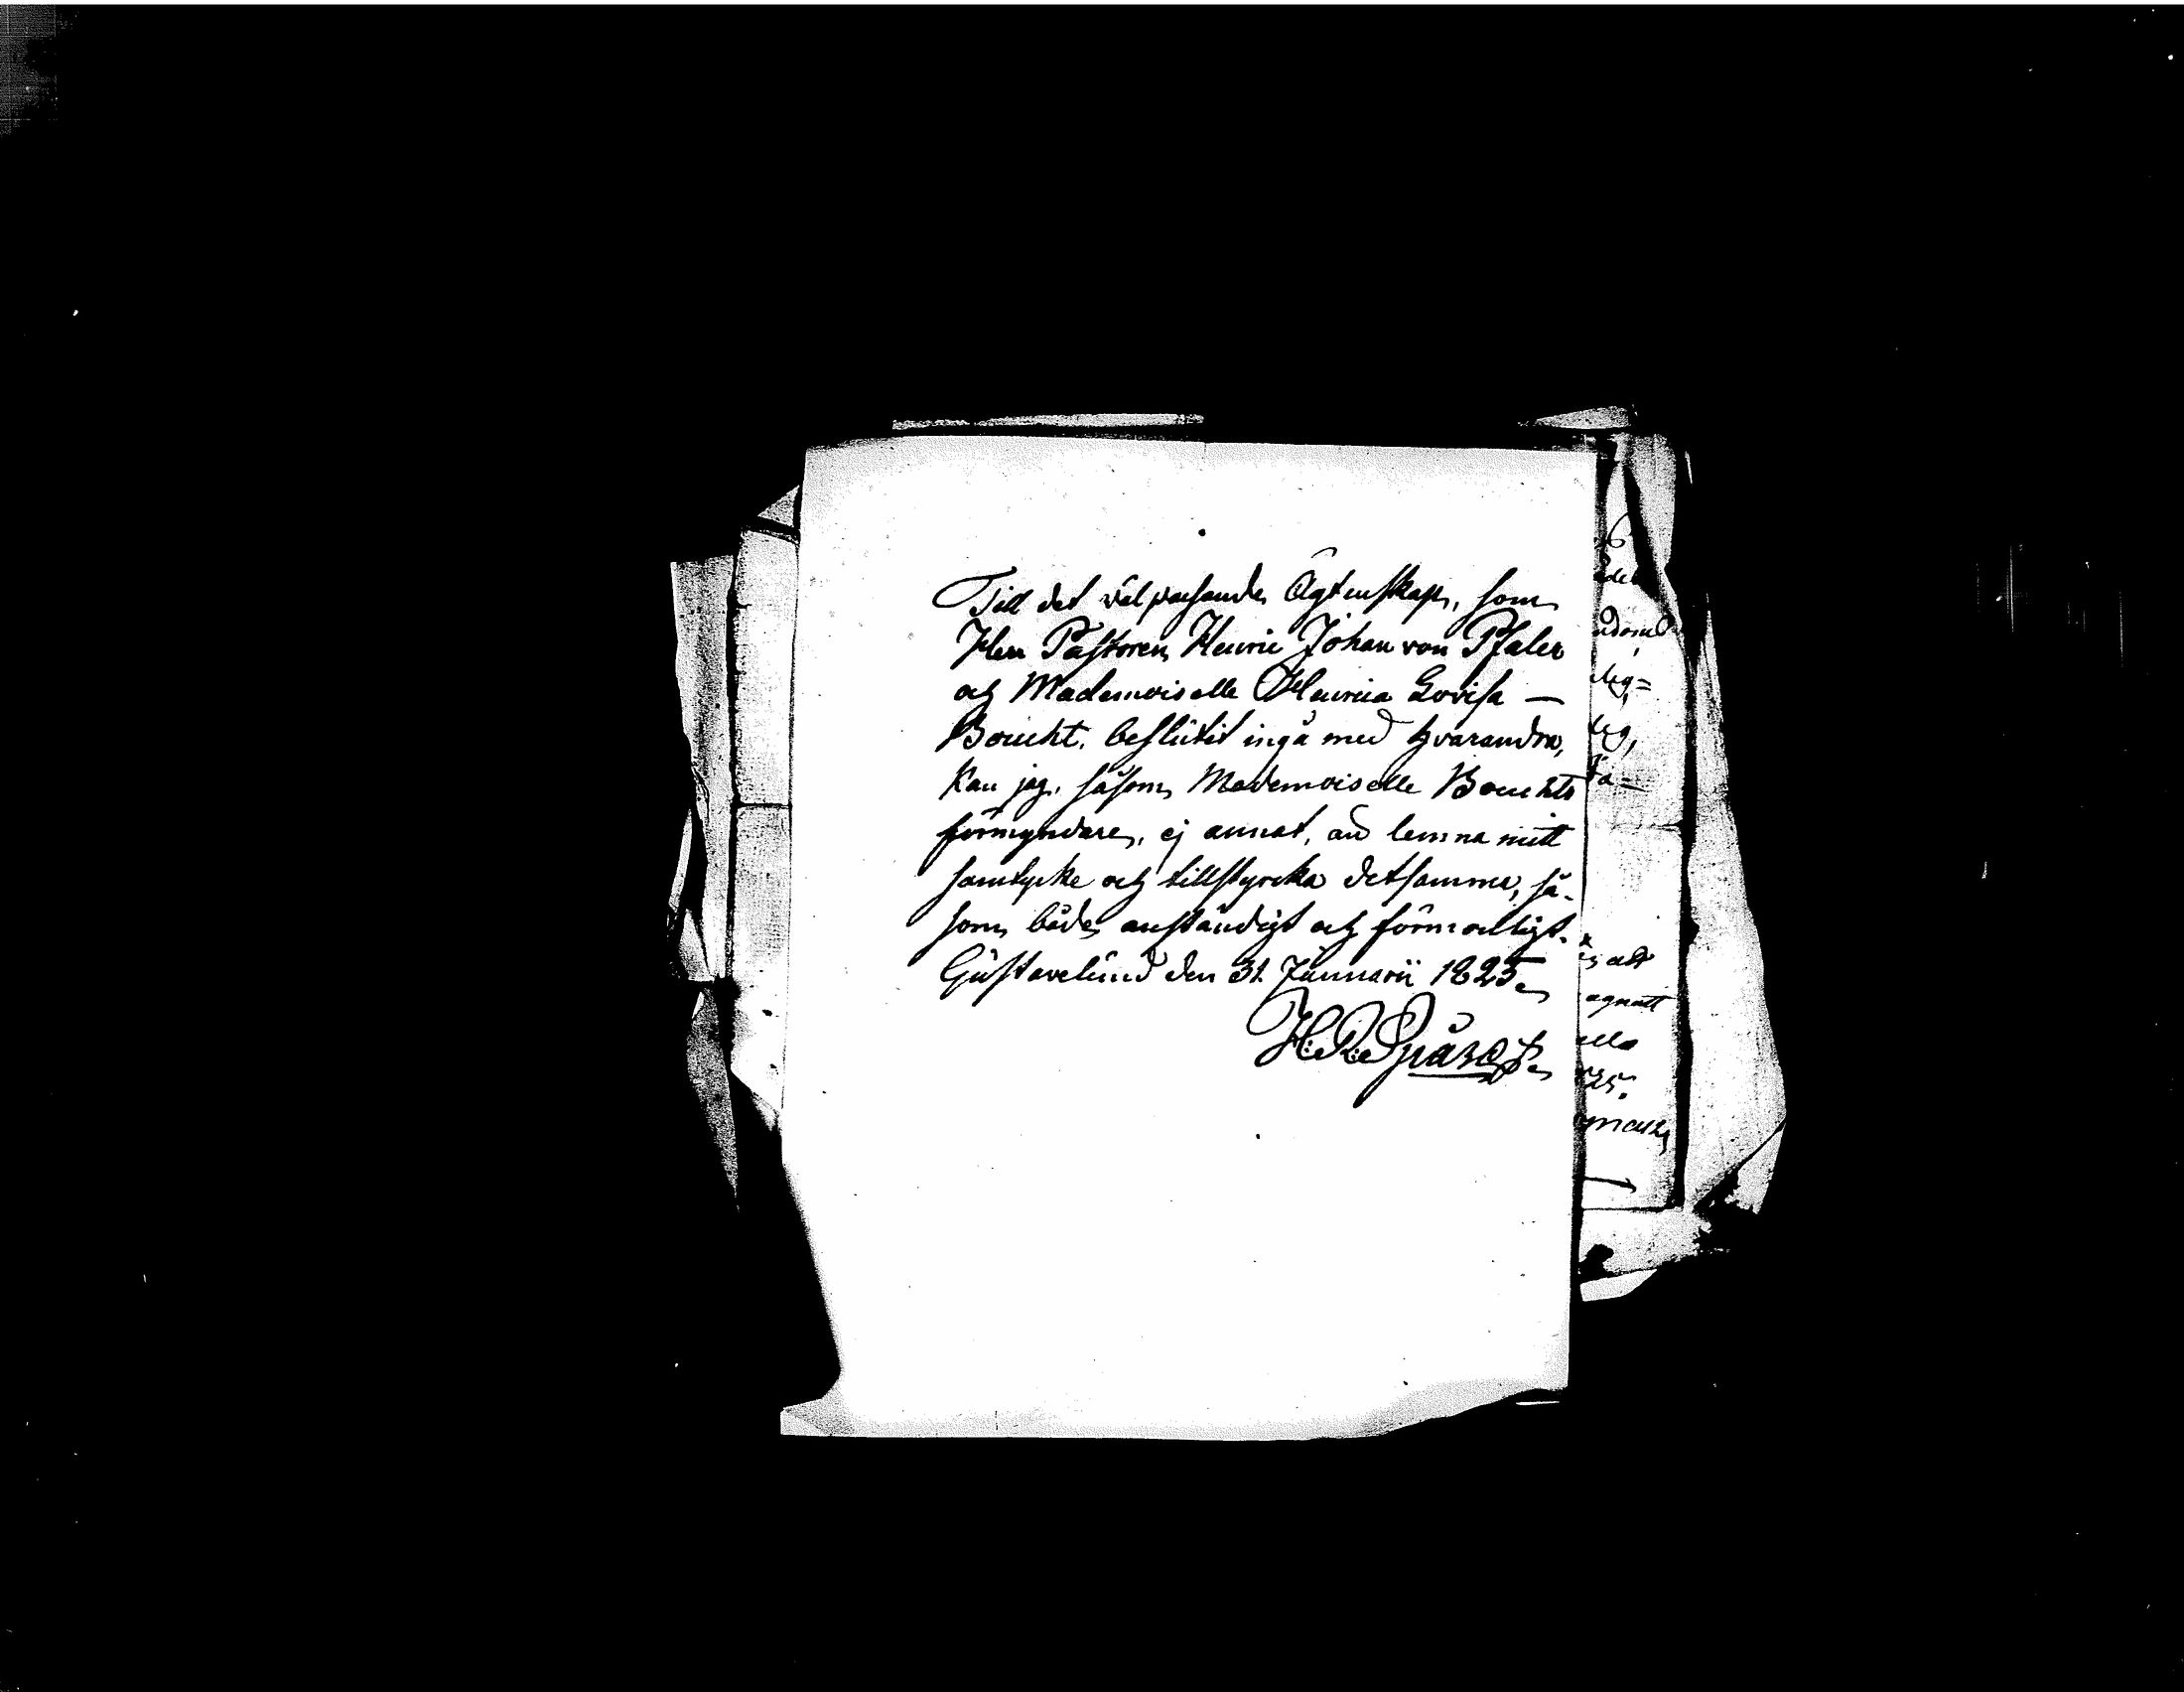 Till det välpassande Ägtenskap, som
Herr Pastoren Henric Johan von Pfaler
och Mademoiselle Henrica Lovisa —
Boucht, beslutit ingå med hvarandra,
kan jag, såsom Mademoiselle Bouchts
förmyndare, ej annat, än lemna mitt
samtycke och tillstyrcka detsamma, så-
som både anständigt och förmonligt.
Gustavelund den 31 Januarii 1825